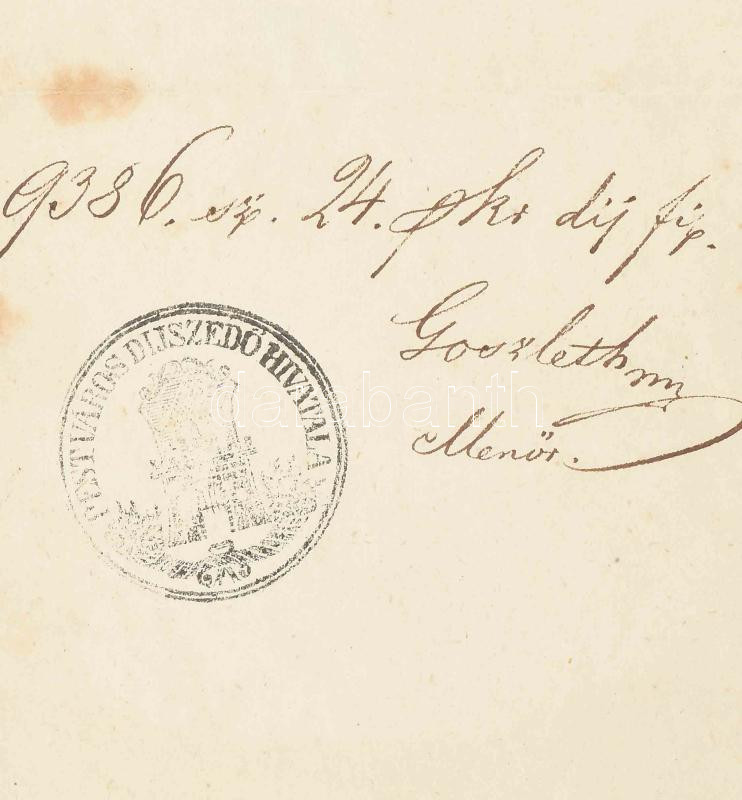 9386. sz. 24. pkr dij fiz.
Goszleth mp
Menör.
PEST VÁROS DIJSZEDŐ HIVATALA
darabanth